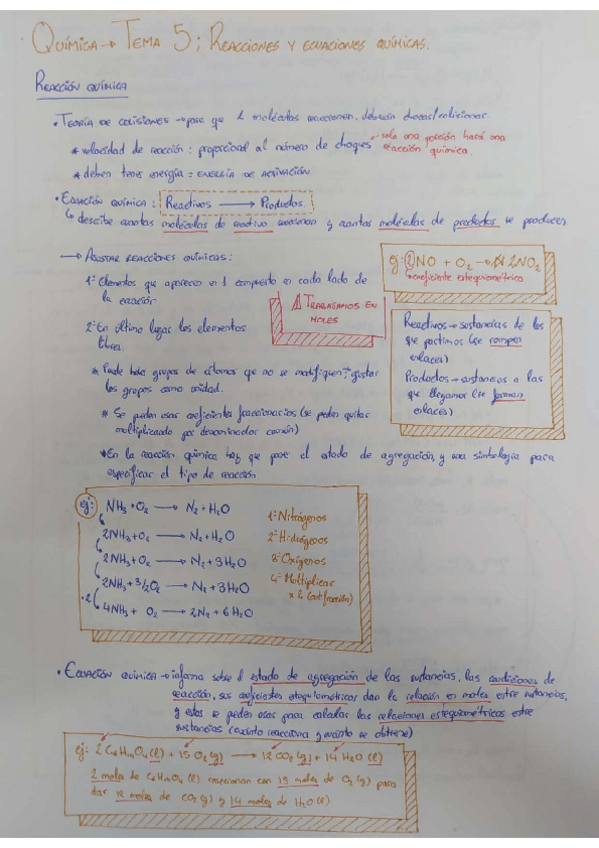 QUÍMICA → TEMA 5; REACCIONES Y ECUACIONES QUÍMICAS.
REACCIÓN QUÍMICA
• TEORÍA DE COLISIONES → para que 2 moléculas reaccionen, deberán chocar/colisionar.
* velocidad de reacción: proporcional al número de choques → solo una porción hará una
reacción química.
* deben tener energía = ENERGÍA DE ACTIVACIÓN.
• ECUACIÓN QUÍMICA: Reactivos → Productos.
↳ describe cuantas moléculas de reactivo reaccionan y cuantas moléculas de productos se producen
→ AJUSTAR REACCIONES QUÍMICAS:
1º Elementos que aparecen en 1 compuesto en cada lado de
la ecuación
2º En último lugar los elementos
libres.
* Puede haber grupos de átomos que no se modifiquen; ajustar
los grupos como unidad.
* Se pueden usar coeficientes fraccionarios (se pueden quitar
multiplicando por denominador común)
* En la reacción química hay que poner el estado de agregación, y una simbología para
especificar el tipo de reacción
ej: 2NO + O₂ → 2NO₂
↳ coeficiente estequiométrico
⚠ TRABAJAMOS EN
MOLES
Reactivos → sustancias de las
que partimos (se rompen
enlaces)
Productos → sustancias a las
que llegamos (se forman
enlaces)
ej: NH₃ + O₂ → N₂ + H₂O
2NH₃ + O₂ → N₂ + H₂O
2NH₃ + O₂ → N₂ + 3H₂O
2NH₃ + 3/2O₂ → N₂ + 3H₂O
·2 4NH₃ + O₂ → 2N₂ + 6H₂O
1º Nitrógenos
2º Hidrógenos
3º Oxígenos
4º Multiplicar
x 2 (fracción)
• ECUACIÓN QUÍMICA → informa sobre el estado de agregación de las sustancias, las condiciones de
reacción, sus coeficientes estequiométricos dan la relación en moles entre sustancias,
y estos se pueden usar para calcular las relaciones estequiométricas entre
sustancias (cuánto reacciona y cuánto se obtiene)
ej: 2 C₆H₁₄O₄ (l) + 15 O₂ (g) → 12 CO₂ (g) + 14 H₂O (l)
2 moles de C₆H₁₄O₄ (l) reaccionan con 15 moles de O₂ (g) para
dar 12 moles de CO₂ (g) y 14 moles de H₂O (l)